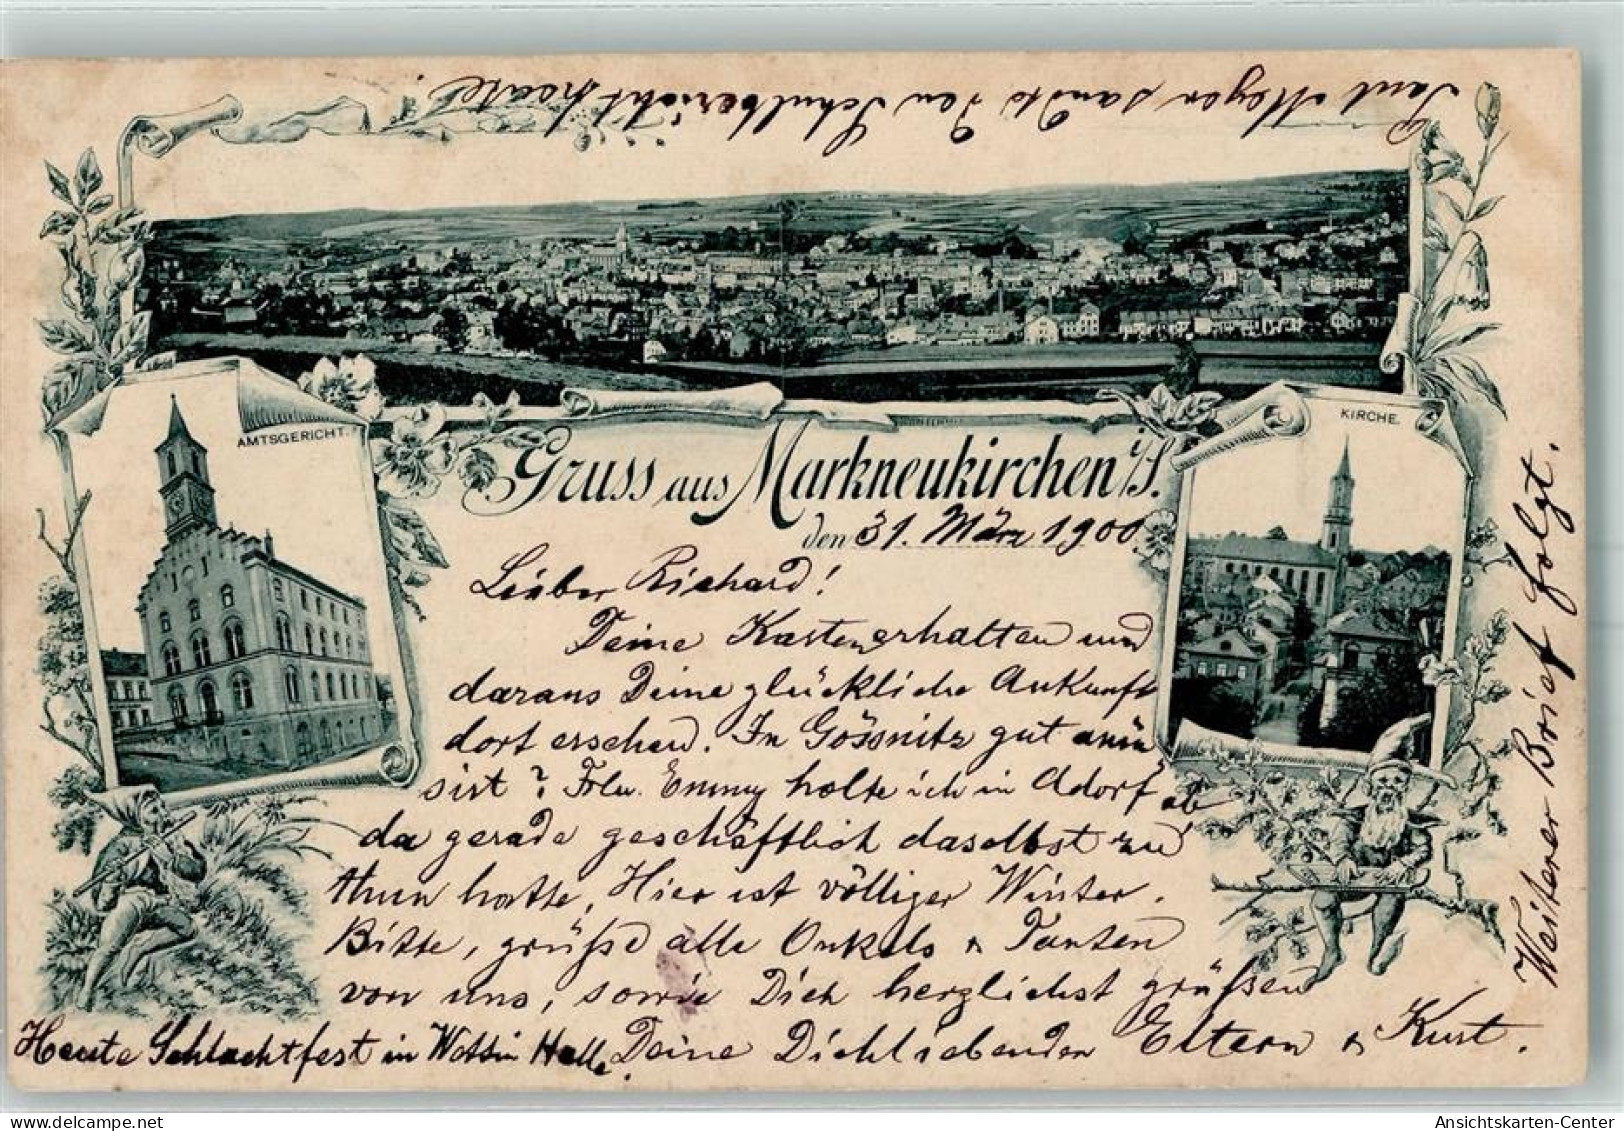 Paul Meyer sandte den Schulbericht heute.
AMTSGERICHT.
KIRCHE.
Gruss aus Markneukirchen i/S.
den 31. März 1900
Lieber Richard!
Deine Karten erhalten und
daraus Deine glückliche Ankunft
dort ersehen. In Gössnitz gut
? Frln. Emmy holte ich in Adorf ab
da gerade geschäftlich daselbst zu
thun hatte. Hier ist völliger Winter.
Bitte, grüße alle Onkels & Tanten
von uns, sowie Dich herzlichst grüßen
Deine Dichliebenden Eltern & Kurt.
Heute Schlachtfest in Wettin Halle.
Weiterer Brief folgt.
Ansichtskarten-Center